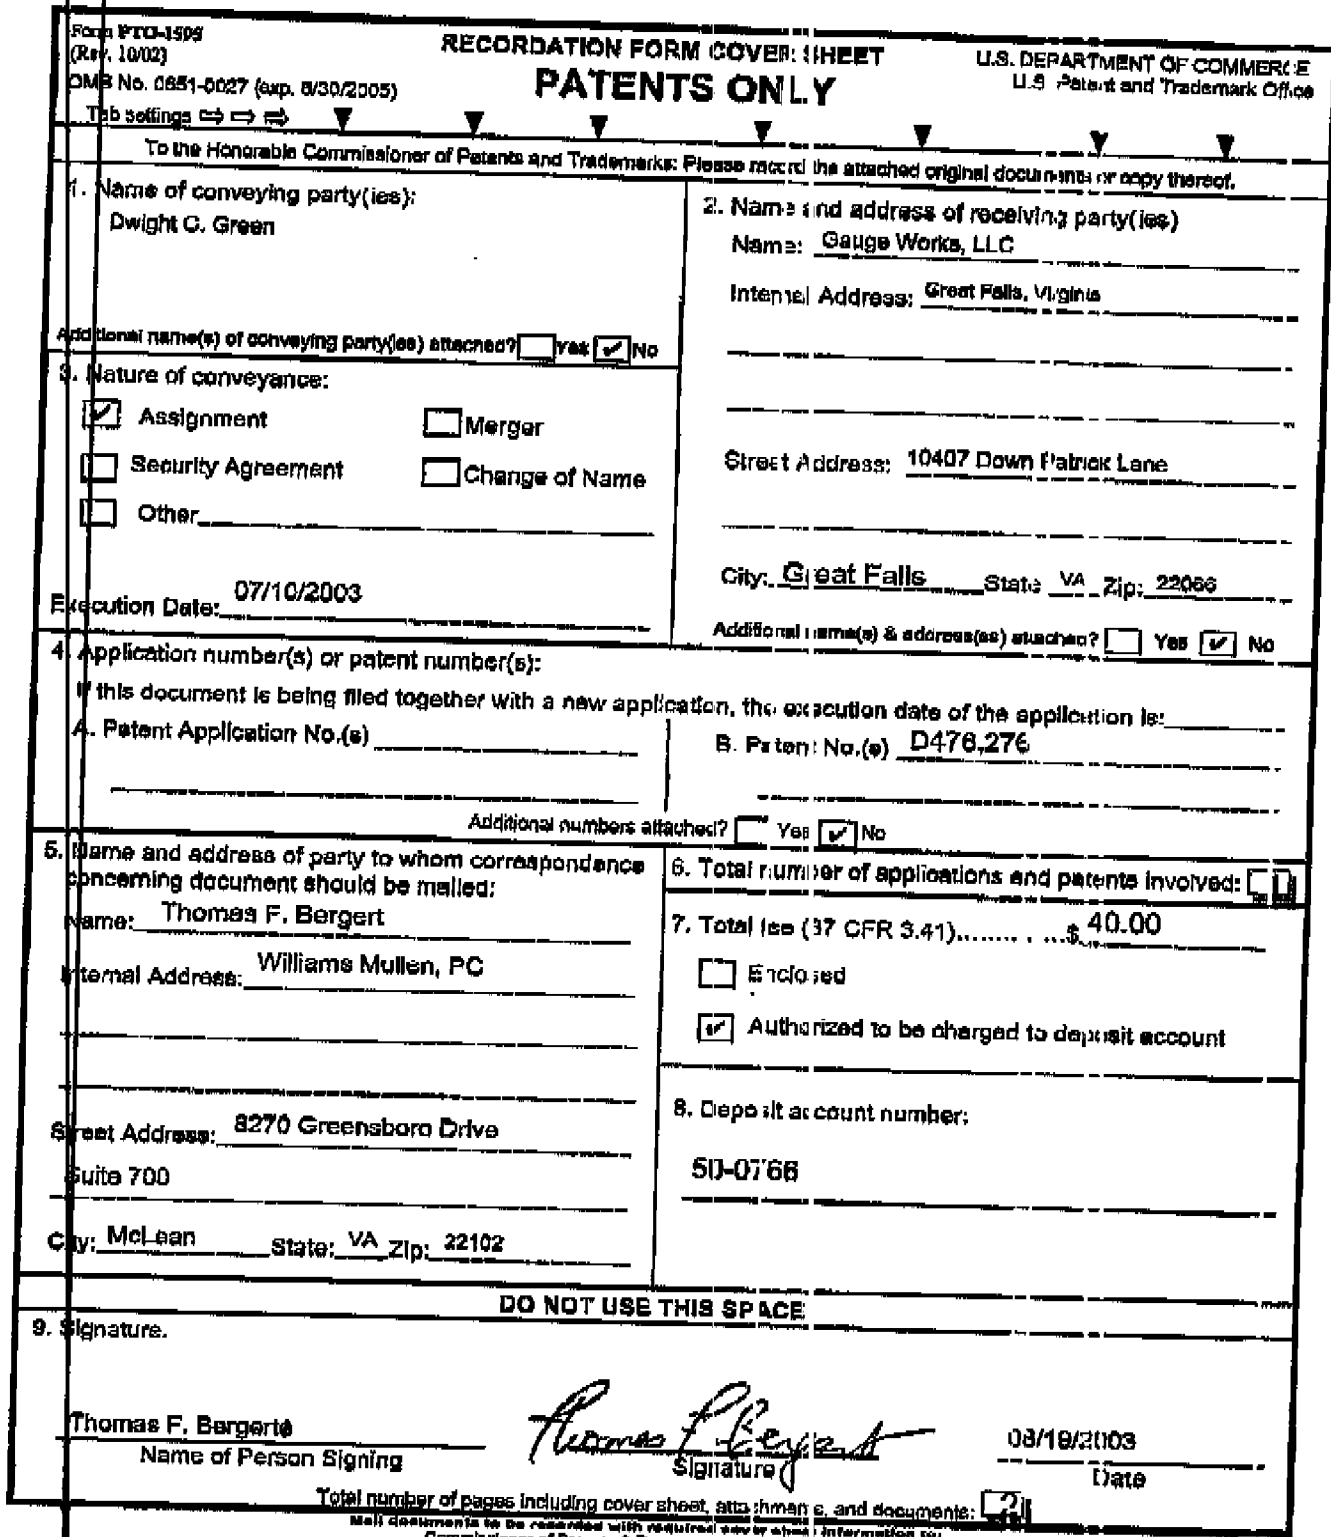 Form PTO-1595
(Rev. 10/02)
OMB No. 0651-0027 (exp. 6/30/2005)
Tab settings ⇨ ⇨ ⇨
RECORDATION FORM COVER SHEET
PATENTS ONLY
U.S. DEPARTMENT OF COMMERCE
U.S. Patent and Trademark Office
To the Honorable Commissioner of Patents and Trademarks: Please record the attached original documents or copy thereof.
1. Name of conveying party(ies):
Dwight C. Green
Additional name(s) of conveying party(ies) attached? Yes ✓ No
2. Name and address of receiving party(ies)
Name: Gauge Works, LLC
Internal Address: Great Falls, Virginia
Street Address: 10407 Down Patrick Lane
City: Great Falls State VA Zip: 22066
Additional name(s) & address(es) attached? Yes ✓ No
3. Nature of conveyance:
✓ Assignment Merger
Security Agreement Change of Name
Other
Execution Date: 07/10/2003
4. Application number(s) or patent number(s):
If this document is being filed together with a new application, the execution date of the application is:
A. Patent Application No.(s)
B. Patent No.(s) D476,276
Additional numbers attached? Yes ✓ No
5. Name and address of party to whom correspondence
concerning document should be mailed:
Name: Thomas F. Bergert
Internal Address: Williams Mullen, PC
Street Address: 8270 Greensboro Drive
Suite 700
City: McLean State: VA Zip: 22102
6. Total number of applications and patents involved:
7. Total fee (37 CFR 3.41)............$ 40.00
Enclosed
✓ Authorized to be charged to deposit account
8. Deposit account number:
50-0766
DO NOT USE THIS SPACE
9. Signature.
Thomas F. Bergerte
Name of Person Signing
Thomas F Bergert
Signature
08/19/2003
Date
Total number of pages including cover sheet, attachments, and documents:
Mail documents to be recorded with required cover sheet information to: